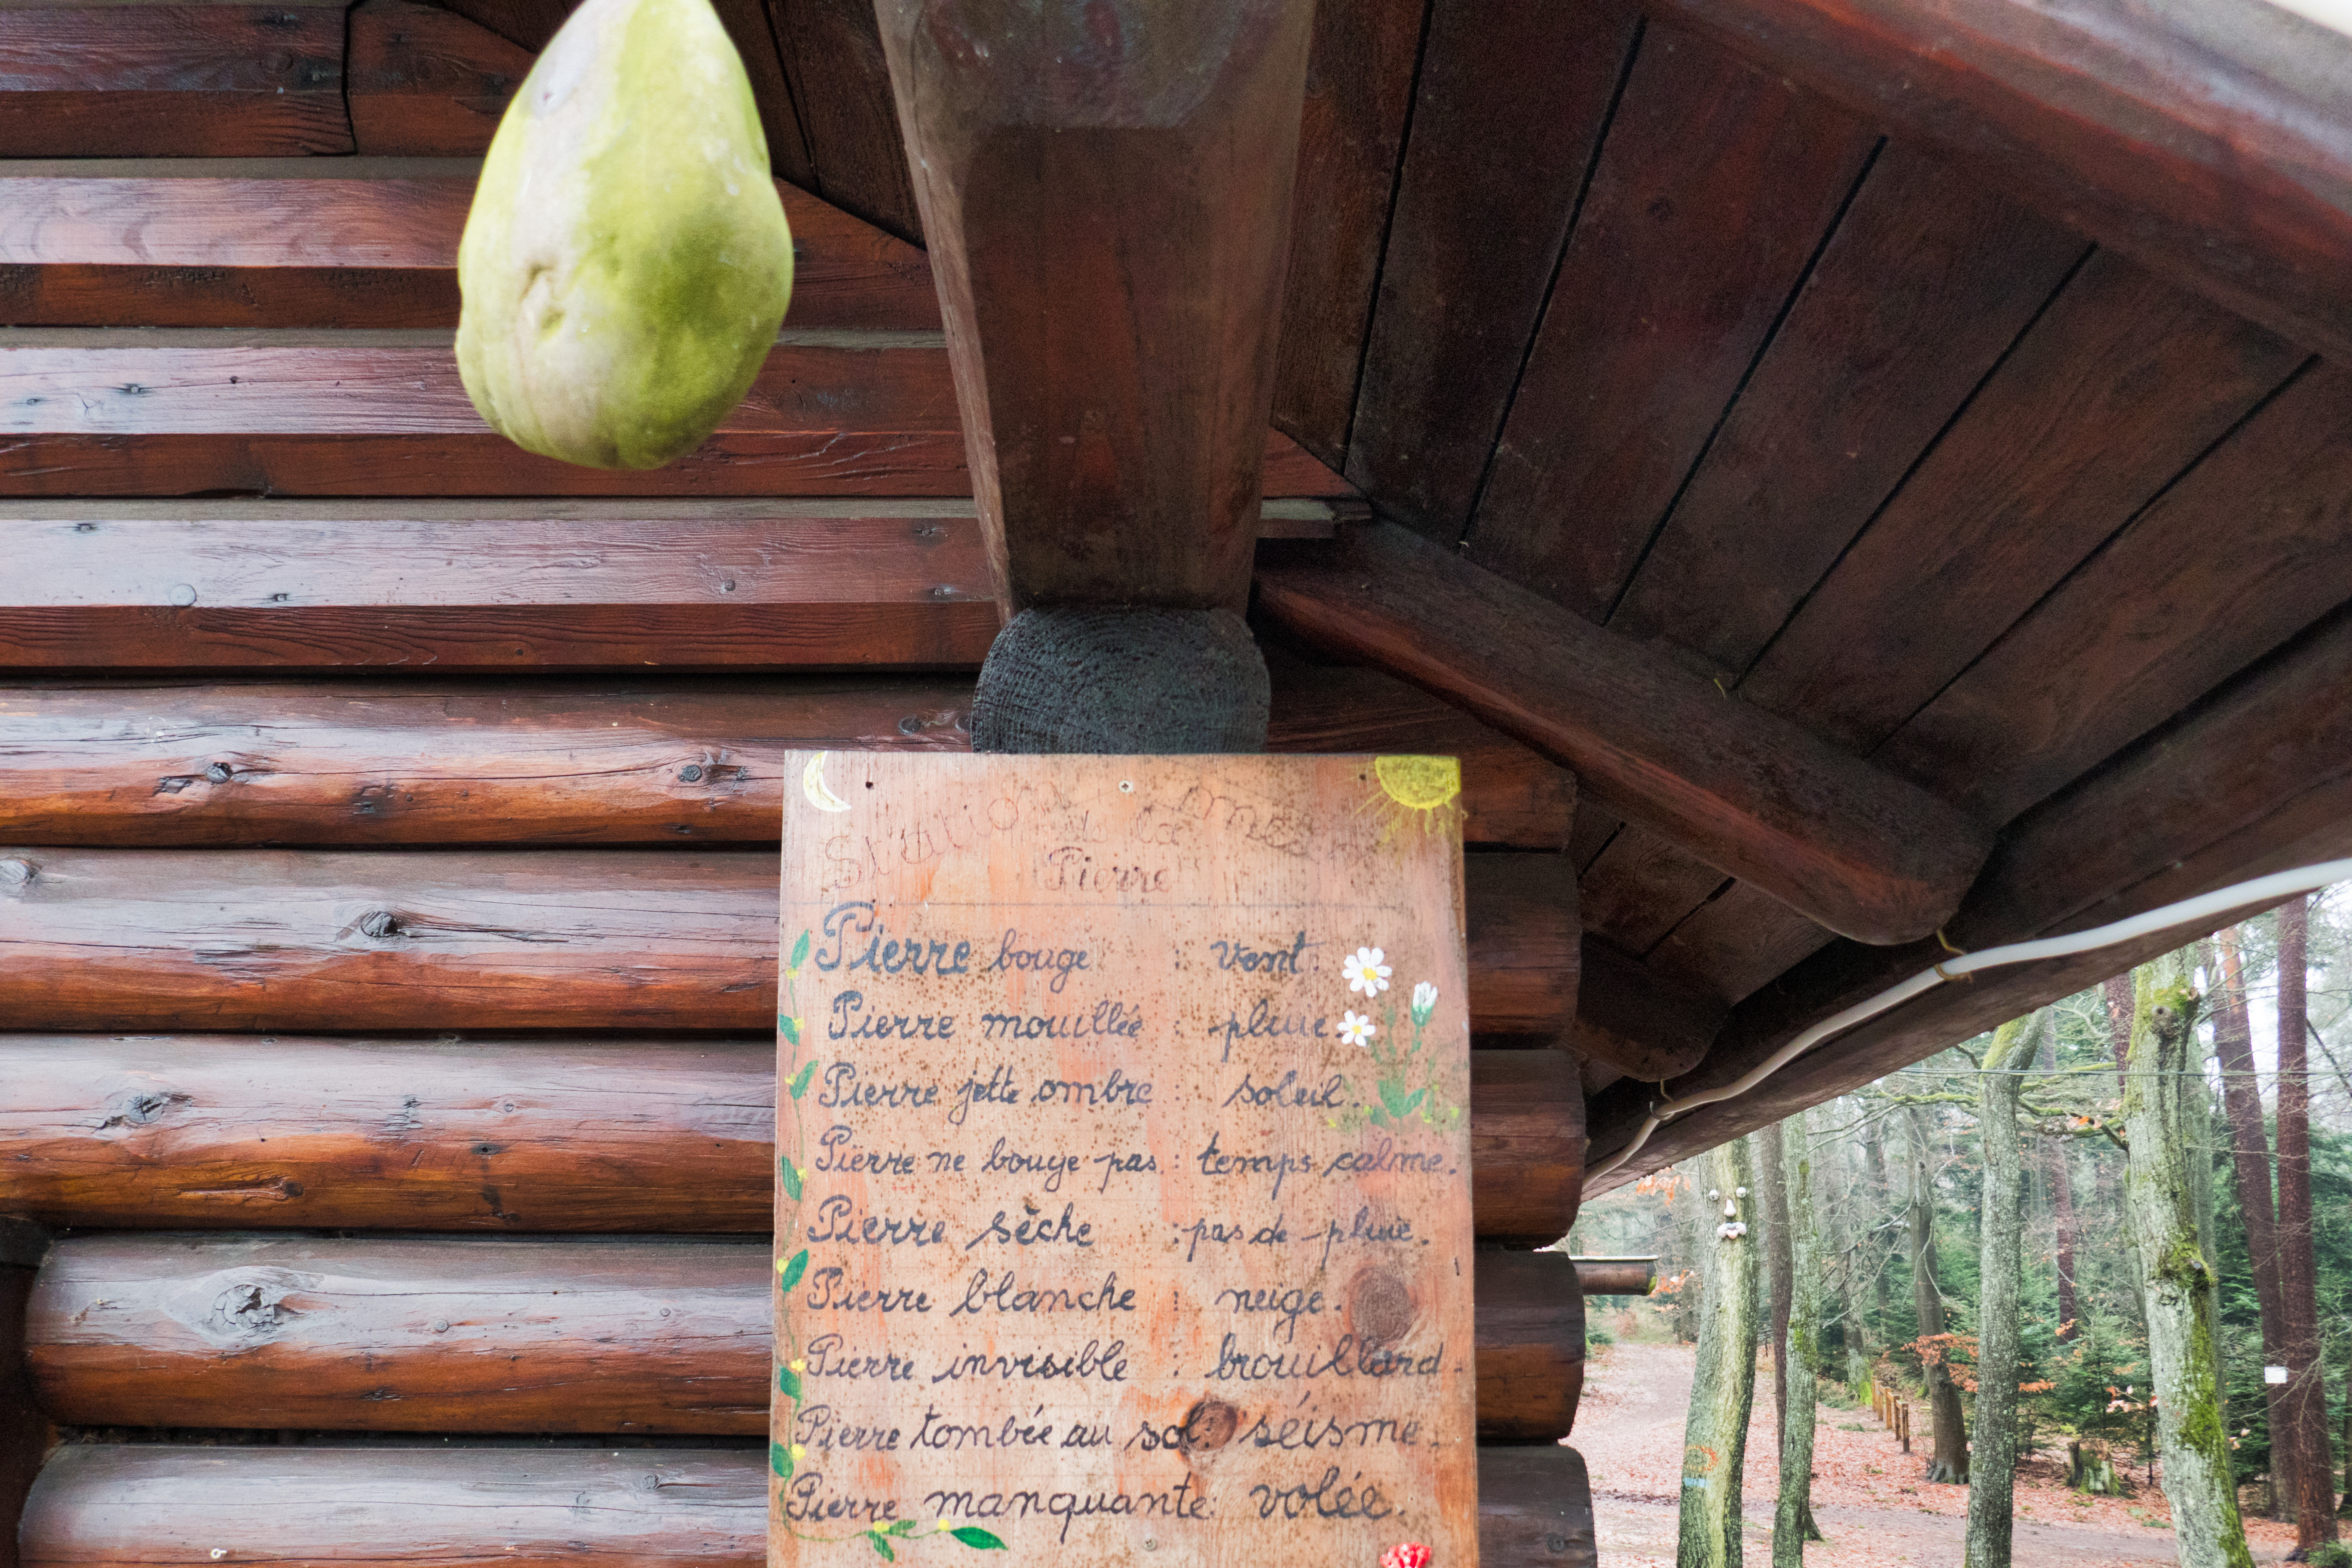 Station
de la
Pierre
Pierre bouge : vent.
Pierre mouillée : pluie
Pierre jette ombre : soleil.
Pierre ne bouge pas : temps calme.
Pierre sèche : pas de pluie.
Pierre blanche : neige.
Pierre invisible : brouillard.
Pierre tombée au sol : séisme.
Pierre manquante : volée.